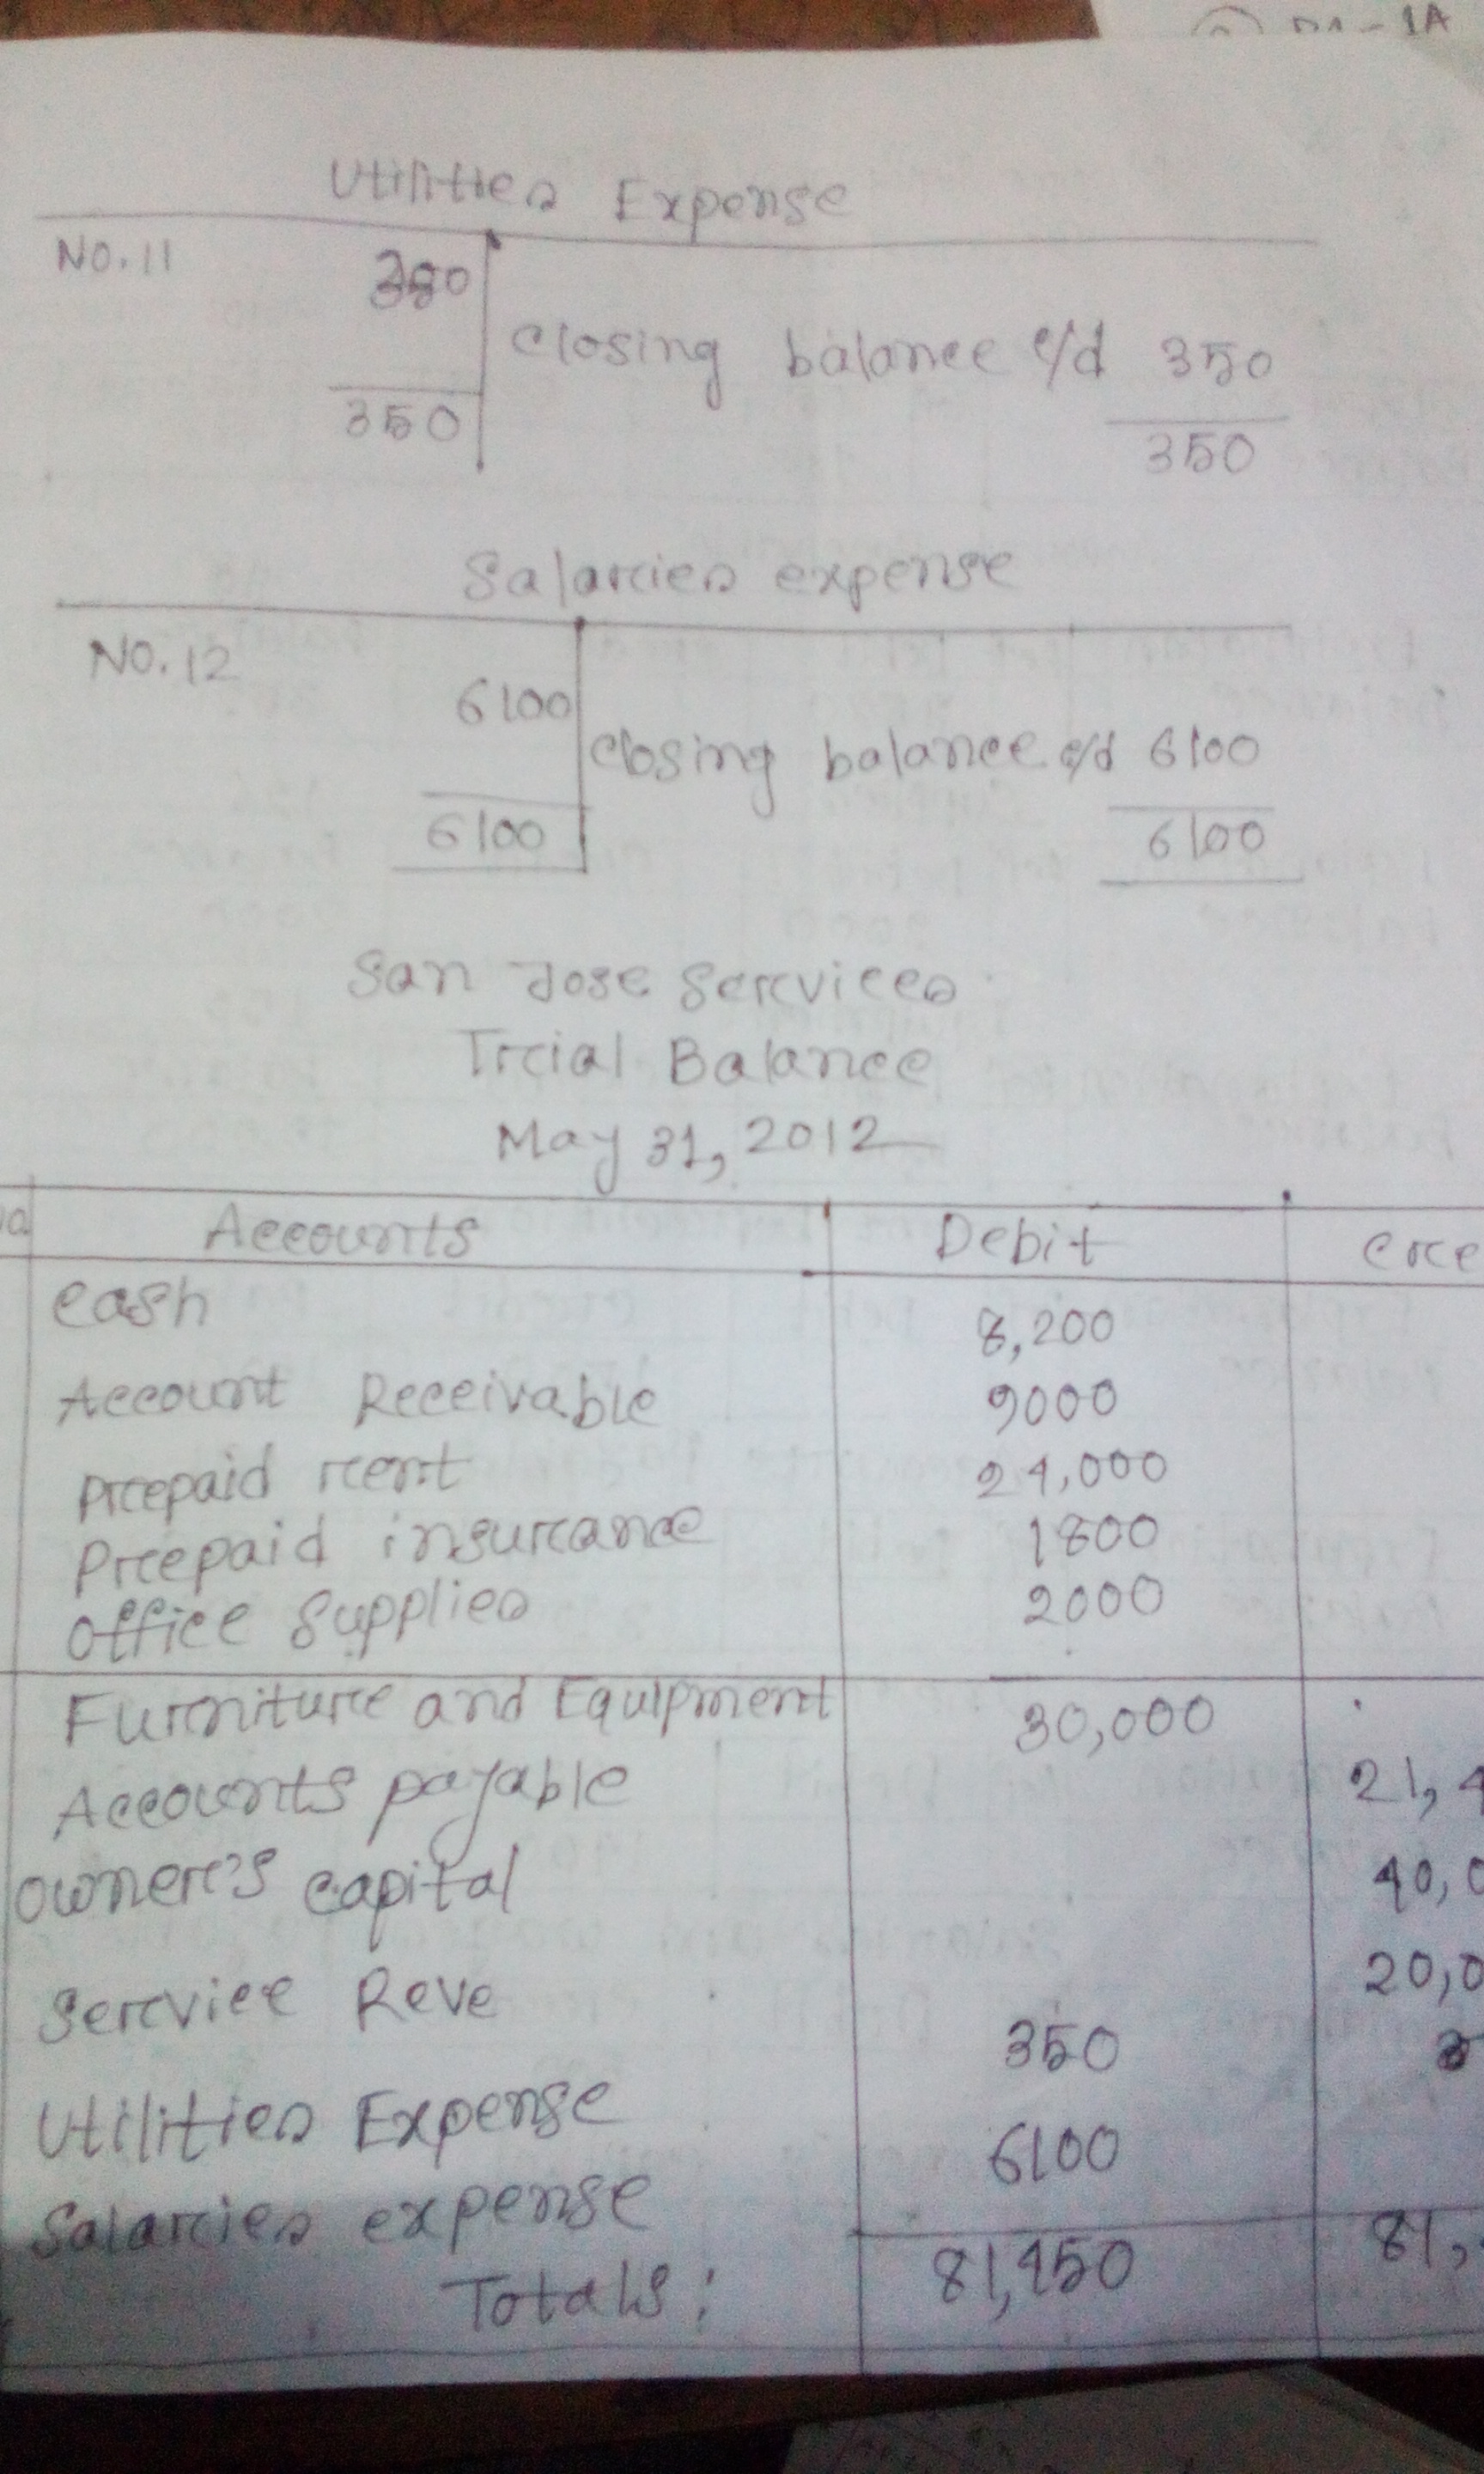 - 1A
Utilities Expense
No. 11 350
closing balance c/d 350
350 350
Salaries expense
No. 12 6100
closing balance c/d 6100
6100 6100
San Jose Services
Trial Balance
May 31, 2012
Accounts Debit Cre
Cash 8,200
Account Receivable 9000
Prepaid rent 24,000
Prepaid insurance 1800
Office Supplies 2000
Furniture and Equipment 30,000
Accounts payable 21,4
Owner's capital 40,0
Service Reve 20,0
Utilities Expense 350
Salaries expense 6100
Totals: 81,450 81,